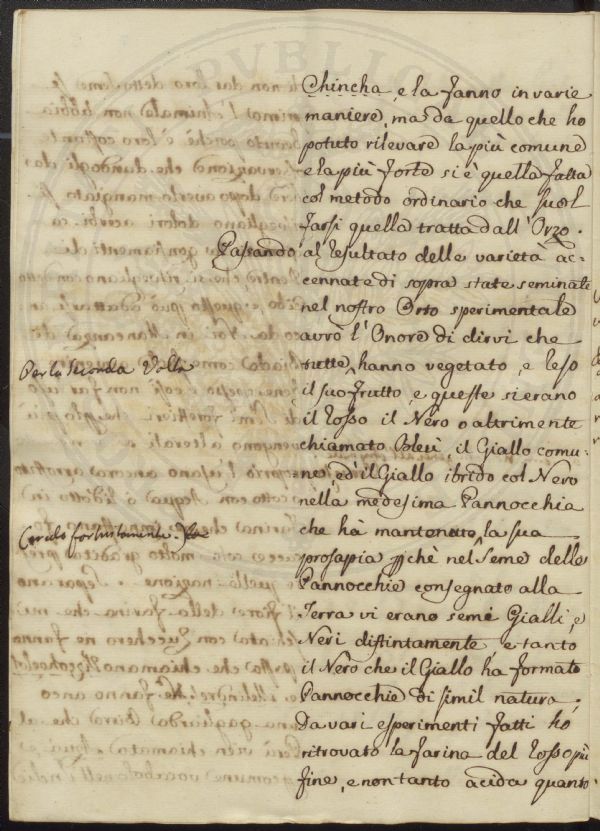 Chincha, e la fanno in varie
maniere, ma da quello che ho
potuto rilevare la più comune
e la più forte si è quella fatta
col metodo ordinario che suol
farsi quella tratta dall'Orzo.
Passando al resultato delle varietà ac=
cennate di sopra state seminate
nel nostro Orto sperimentale
avrò l'Onore di dirvi che
tutte, hanno vegetato, e reso
Per la seconda Volta
il suo frutto, e queste si erano
il rosso il Nero o altrimente
chiamato Bleù, il Giallo comu=
ne, ed il Giallo ibrido col Nero
nella medesima Pannocchia
che hà mantenuto, la sua
prosapia, pchè nel Seme delle
Pannocchie consegnato alla
Terra vi erano semi Gialli, e
Neri distintamente, e tanto
il Nero che il Giallo ha formato
Pannocchie di simil natura;
Da vari esperimenti fatti hò
ritrovato la farina del rosso più
fine, e non tanto acida quanto